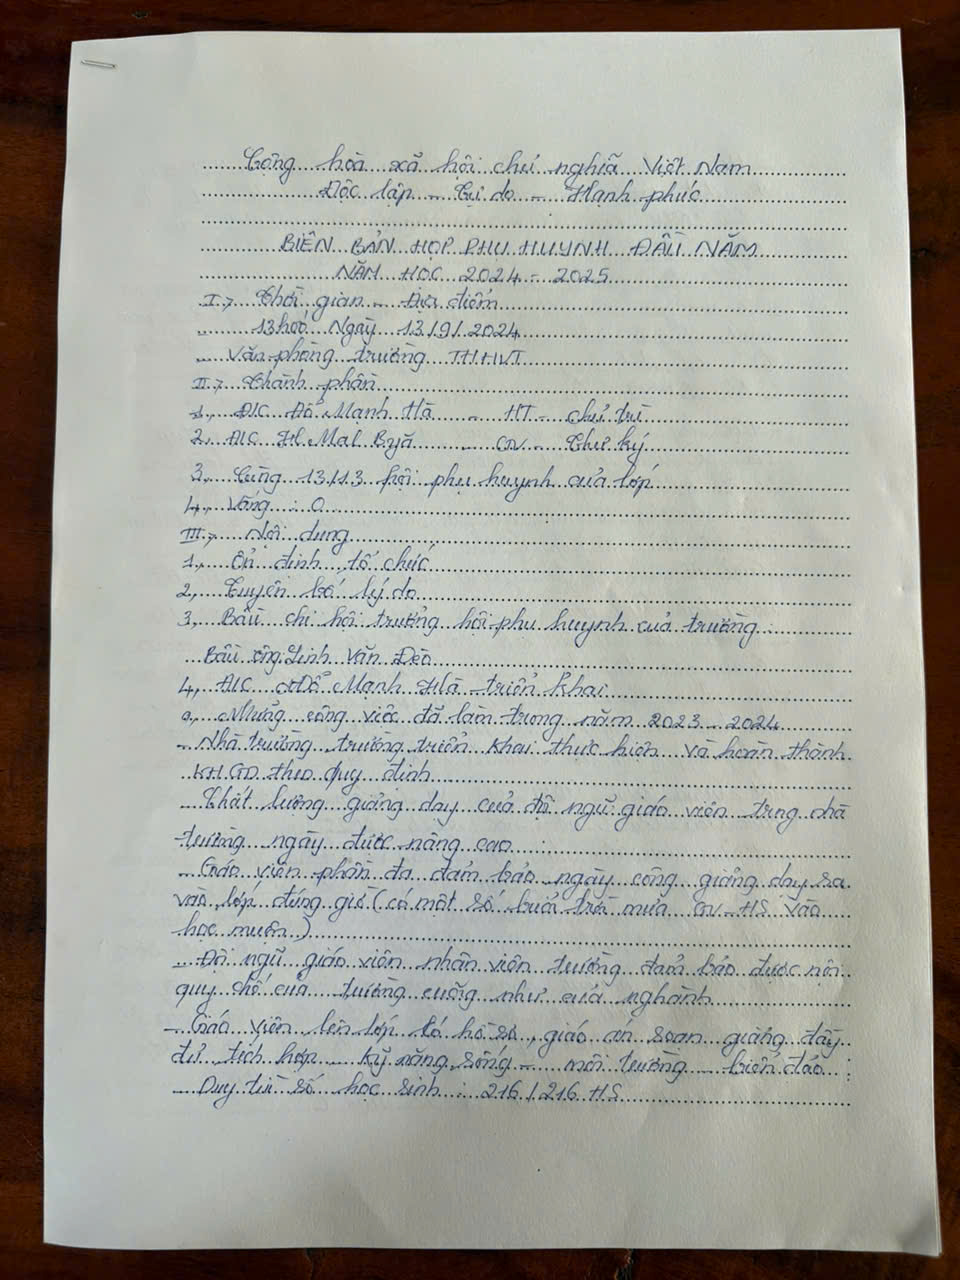 Cộng hoà xã hội chủ nghĩa Việt Nam
Độc lập - Tự do - Hạnh phúc
BIÊN BẢN HỌP PHỤ HUYNH ĐẦU NĂM
NĂM HỌC 2024 - 2025
I., Thời gian - Địa điểm
13h00 Ngày 13/9/2024
Văn phòng trường TH HVT
II., Thành phần
1., Đ/C Đỗ Mạnh Hà - HT - chủ trì
2., Đ/C H Mal Byă - GV - Thư ký
3., Cùng 13/13 hội phụ huynh của lớp
4., Vắng : 0
III., Nội dung
1., Ổn định tổ chức
2., Tuyên bố lý do
3., Bầu chi hội trưởng hội phụ huynh của trường :
Bầu ông Linh Văn Đèo
4., Đ/C Đỗ Mạnh Hà triển khai
a., Những công việc đã làm trong năm 2023 - 2024
- Nhà trường trường triển khai thực hiện và hoàn thành
KH GD theo quy định
- Chất lượng giảng dạy của đội ngũ giáo viên trng nhà
trường ngày được nâng cao
- Giáo viên phần đa đảm bảo ngày công giảng dạy ra
vào lớp đúng giờ (có một số buổi trời mưa GV - HS vào
học muộn)
- Đội ngũ giáo viên nhân viên trường đảm bảo được nội
quy chế của trường cũng như của nghành
- Giáo viên lên lớp có hồ sơ, giáo án soạn giảng đầy
đủ tích hợp kỹ năng sống - môi trường - biển đảo
- Duy trì số học sinh : 216/216 HS